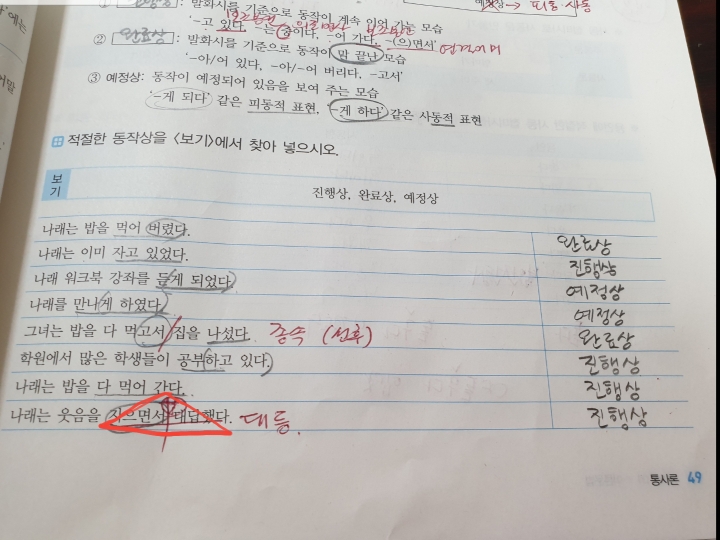 : 발화시를 기준으로 동작이 계속 이어 가는 모습
'-고 있다, -는 중이다, -어 가다, -(으)면서'
② 완료상 : 발화시를 기준으로 동작이 막 끝난 모습
'-아/어 있다, -아/-어 버리다, -고서'
③ 예정상: 동작이 예정되어 있음을 보여 주는 모습
'-게 되다' 같은 피동적 표현, '-게 하다' 같은 사동적 표현
적절한 동작상을 <보기>에서 찾아 넣으시오.
보기
진행상, 완료상, 예정상
나래는 밥을 먹어 버렸다. 완료상
나래는 이미 자고 있었다. 진행상
나래 워크북 강좌를 듣게 되었다. 예정상
나래를 만나게 하였다. 예정상
그녀는 밥을 다 먹고서 집을 나섰다. 종속 (선후) 완료상
학원에서 많은 학생들이 공부하고 있다. 진행상
나래는 밥을 다 먹어 간다. 진행상
나래는 웃음을 지으면서 대답했다. 대등. 진행상
통사론 49